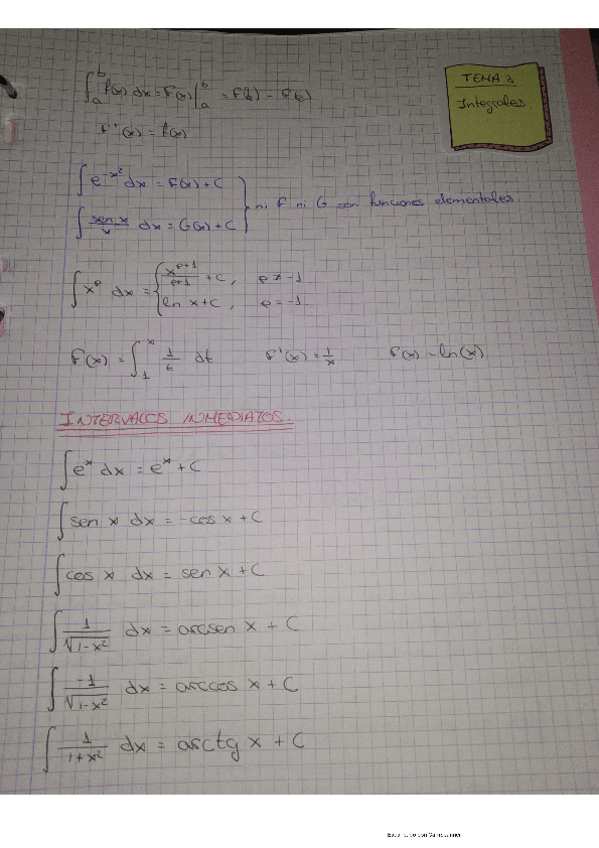 TEMA 3
Integrales.
∫_a^b f(x) dx = F(x)|_a^b = F(b) - F(a)
F'(x) = f(x)
∫ e^{-x²} dx = F(x) + C
∫ sen x / x dx = G(x) + C } ni F ni G son funciones elementales.
∫ x^p dx = { x^{p+1}/(p+1) + C, p ≠ -1
ln x + C, p = -1
F(x) = ∫_1^x 1/t dt F'(x) = 1/x F(x) = ln(x)
INTERVALOS INMEDIATOS.
∫ e^x dx = e^x + C
∫ sen x dx = -cos x + C
∫ cos x dx = sen x + C
∫ 1/√(1-x²) dx = arcsen x + C
∫ -1/√(1-x²) dx = arccos x + C
∫ 1/(1+x²) dx = arctg x + C